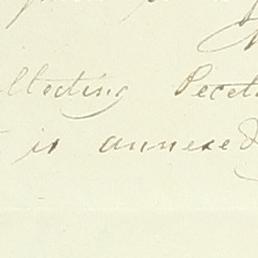 ollecting Pecet
is annexed